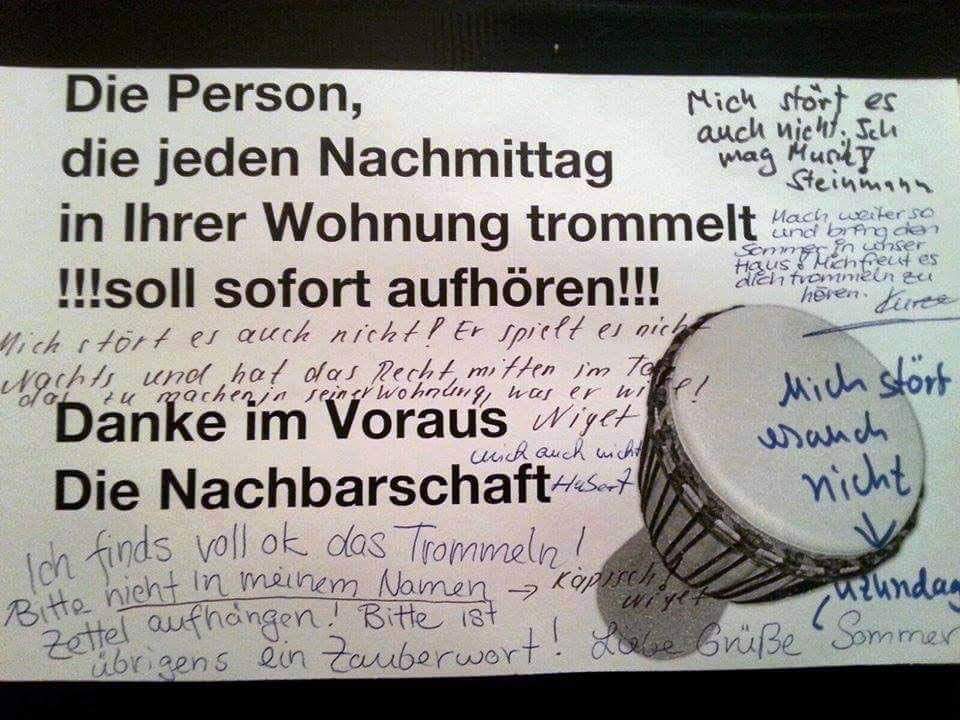 Die Person,
die jeden Nachmittag
in Ihrer Wohnung trommelt
!!!soll sofort aufhören!!!
Mich stört es
auch nicht. Ich
mag Musik
Steinmann
Mach weiter so
und bring den
Sommer in unser
Haus! Mich freut es
dich trommeln zu
hören. Kurze
Mich stört es auch nicht! Er spielt es nicht
Nachts und hat das Recht mitten im Tag
das zu machen in seiner Wohnung, was er will!
Niget
Danke im Voraus
mich auch nicht
Hubert
Die Nachbarschaft
Mich stört
es auch
nicht
Uzundag
Ich finds voll ok das Trommeln!
Bitte nicht in meinem Namen
Zettel aufhängen! Bitte ist
übrigens ein Zauberwort! Liebe Grüße Sommer
→ Kapisch!
Niget